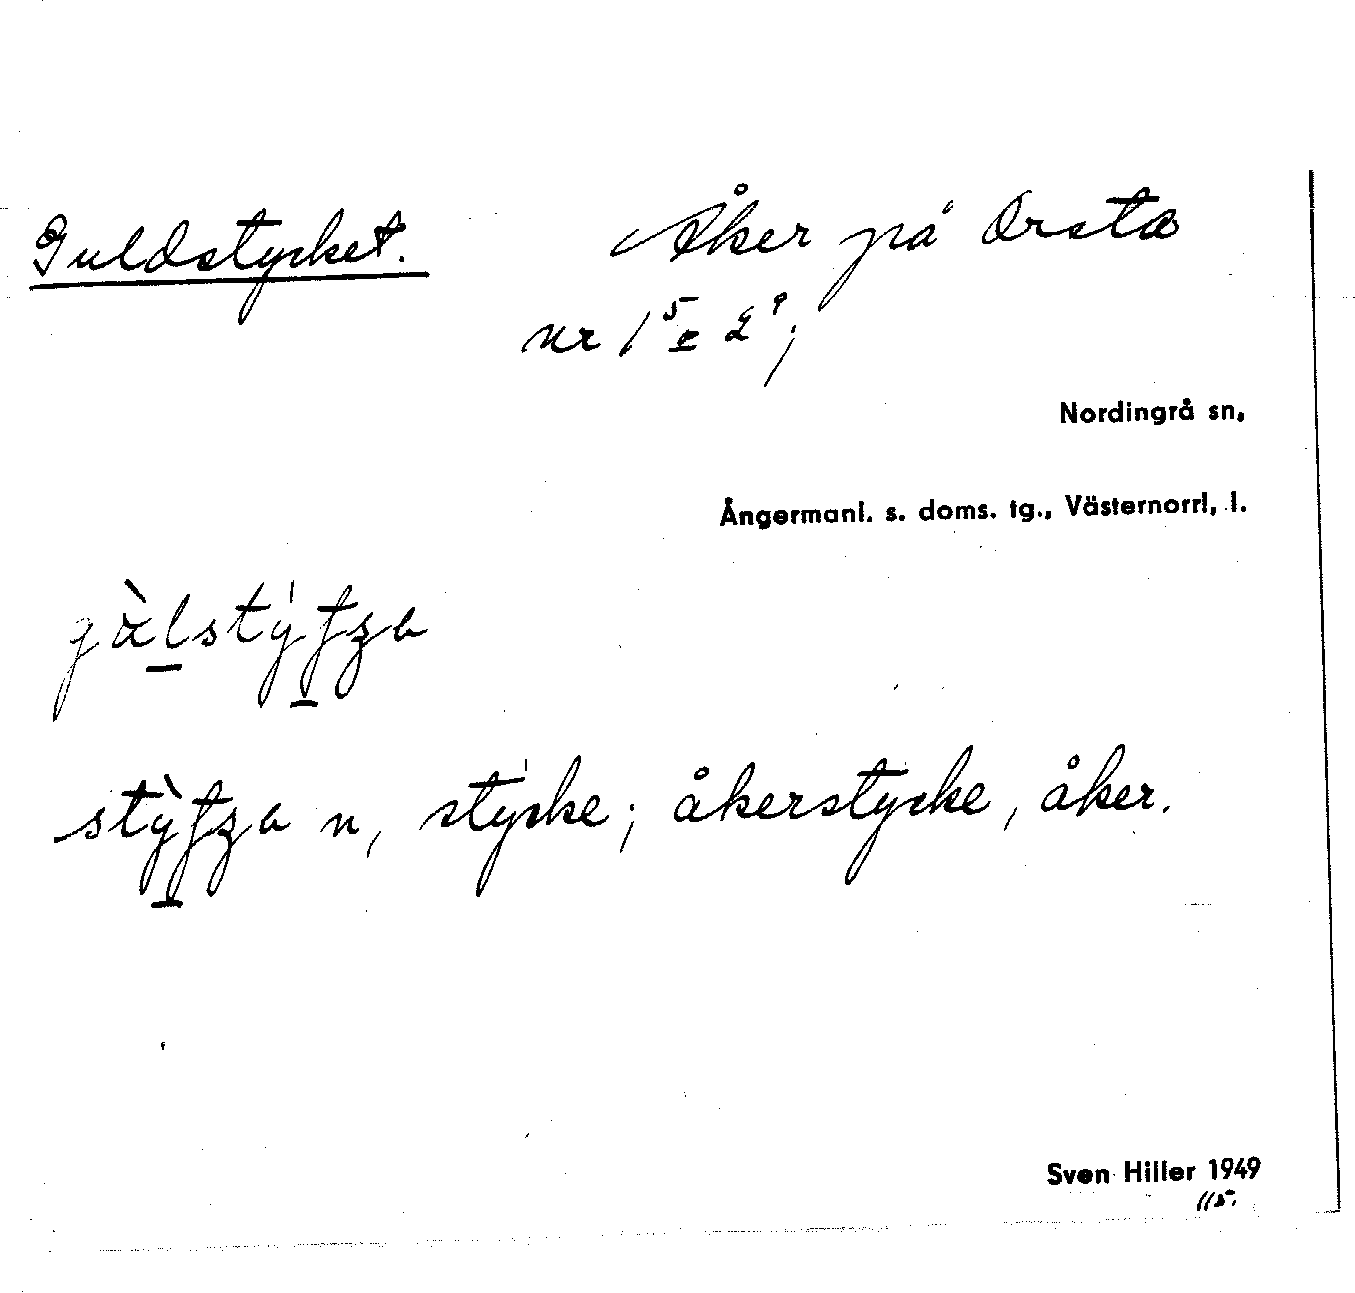 Guldstycket. Åker på Orsta
nr 1⁵ o 2⁹;
Nordingrå sn,
Ångermanl. s. doms. tg., Västernorrl, l.
gàlstýfza
stỳfza n, stycke; åkerstycke, åker.
Sven Hiller 1949
115.